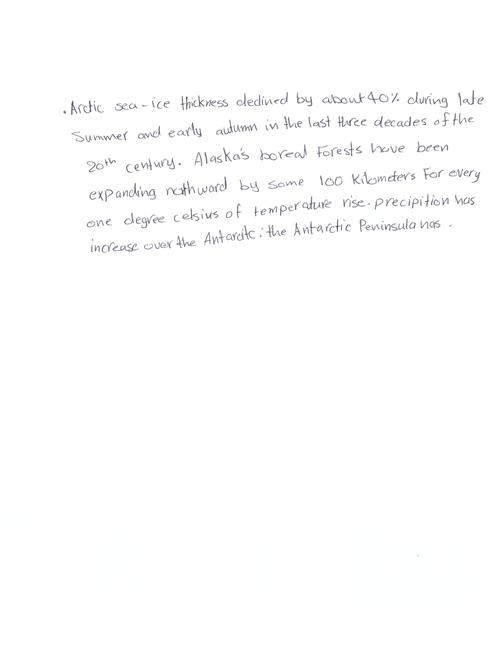 . Arctic sea-ice thickness declined by about 40% during late
Summer and early autumn in the last three decades of the
20th century. Alaska's boreal Forests have been
expanding nothward by some 100 Kilometers For every
one degree celsius of temperature rise. precipition has
increase over the Antarcitc : the Antarctic Peninsula has .